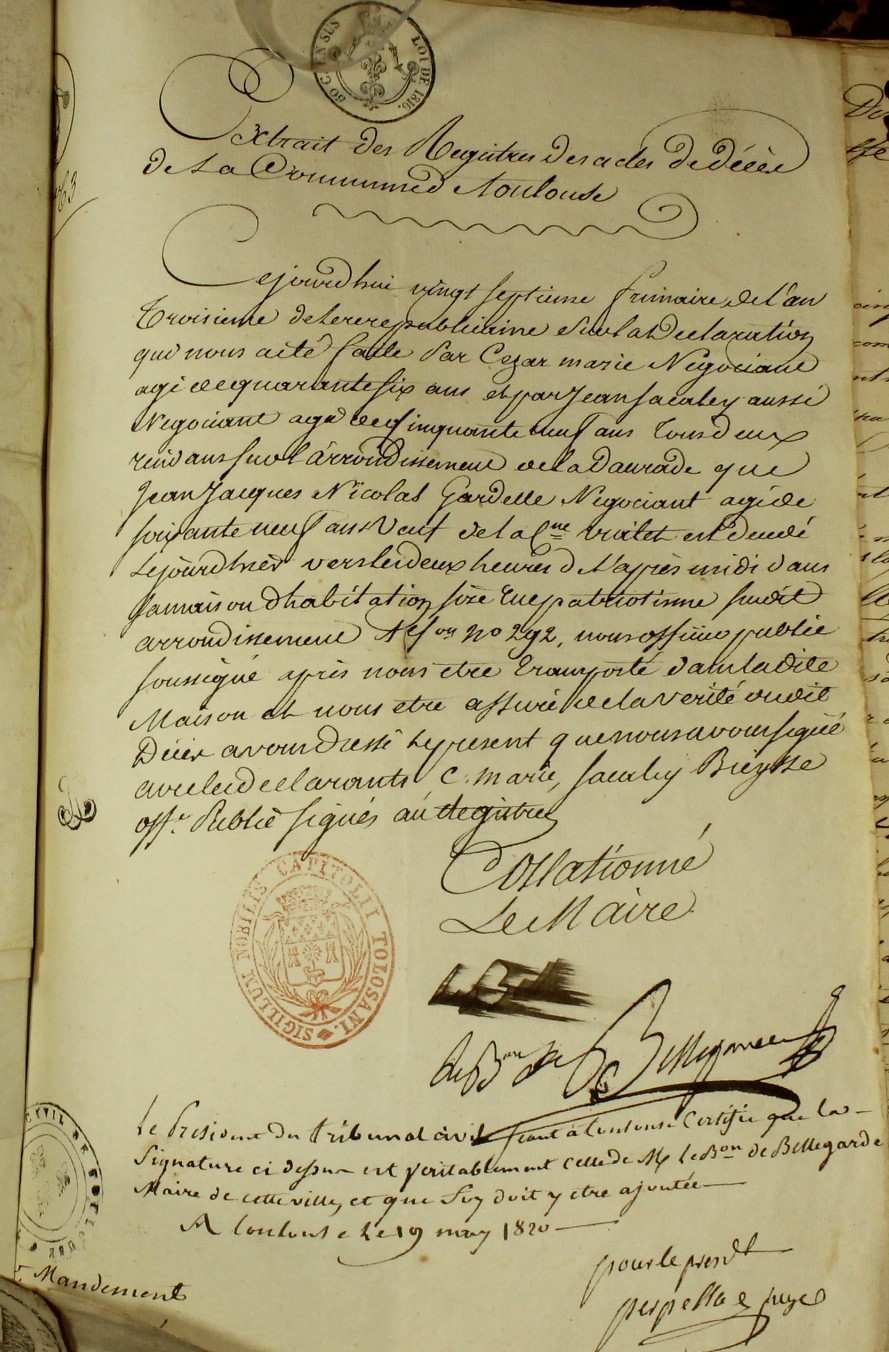 50 C. EN SUS
LOI DE 1816.
Extrait des Registres des actes de décès
de La Commune de toulouse
Cejourdhui vingt septieme frimaire, de l'an
Troisieme de lere republicaine Sur la declaration
qui nous a été faite Par Cezar marie Negociant
agé de quarante six ans et par Jean Jacaley aussi
Negociant agé de cinquante neuf ans Tous deux
residans sur l'arrondissement de la Daurade que
Jean Jacques Nicolas Gardelle Negociant agé de
soixante neuf ans Veuf de la Cme est decedé
Lejourdhier vers les deux heures de l'après midi dans
sa maison d'habitation size Rue patriotisme susdit
arrondissement Son no 292, nous officier public
soussigné après nous etre transporté dans ladite
Maison et nous etre assuré de la verité dudit
Décès avons dressé le present que nous avons signé
avec les declarants C. marie, Jacaley
offr. Public signés au Registre
Collationné
Le Maire
SIGILLUM NOBILIS CAPITOLII TOLOSANI.
le Bon de Bellegarde
Le President du Tribunal civil seant à toulouse Certifie que la
Signature ci dessus est veritablement celle de Mr Le Bon de Bellegarde
Maire de cette ville, et que foy doit y etre ajoutée
A toulouse Le 19 may 1820
pour le presdt
juge
Mandement